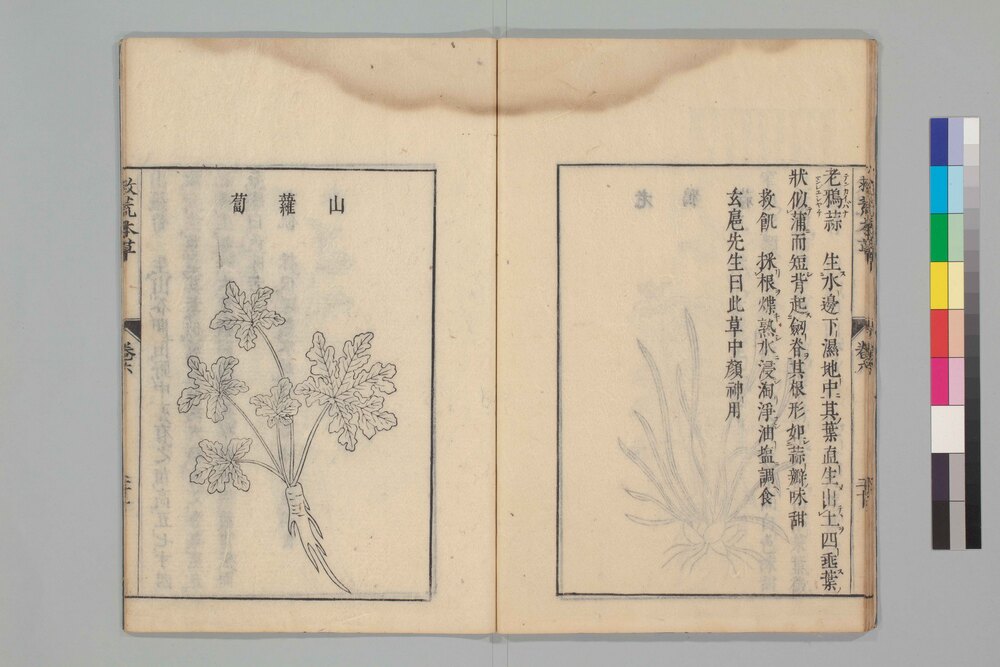 老鴉蒜 生水邊下濕地中其葉直生出土四垂葉
狀似蒲而短背起劒脊其根形如蒜瓣味甜
救飢 採根煠熟水浸淘淨油塩調食
玄扈先生曰此草中顔神用
山蘿蔔
救荒本草
卷六